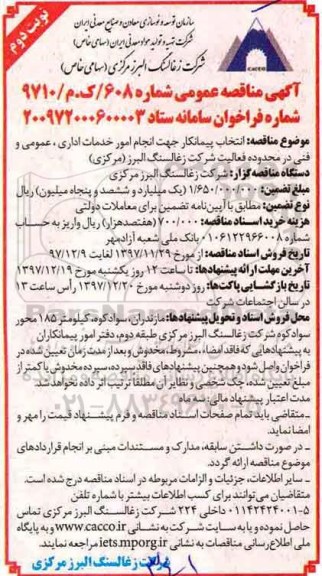 نوبت دوم
سازمان توسعه و نوسازی معادن و صنایع معدنی ایران
شرکت تهیه و تولید مواد معدنی ایران (سهامی خاص)
شرکت زغالسنگ البرز مرکزی (سهامی خاص)
CACCO
آگهی مناقصه عمومی شماره ۶۰۸/ک.م/۹۷۱۰
شماره فراخوان سامانه ستاد ۲۰۰۹۷۲۰۰۰۶۰۰۰۰۳
موضوع مناقصه: انتخاب پیمانکار جهت انجام امور خدمات اداری، عمومی و
فنی در محدوده فعالیت شرکت زغالسنگ البرز (مرکزی)
دستگاه مناقصه گزار: شرکت زغالسنگ البرز مرکزی
مبلغ تضمین: ۱/۶۵۰/۰۰۰/۰۰۰ (یک میلیارد و ششصد و پنجاه میلیون) ریال
نوع تضمین: مطابق با آیین نامه تضمین برای معاملات دولتی
هزینه خرید اسناد مناقصه: ۷۰۰/۰۰۰ (هفتصدهزار) ریال واریز به حساب
شماره ۰۱۰۶۱۲۲۹۶۶۰۰۸ بانک ملی شعبه آزادمهر
تاریخ فروش اسناد مناقصه: از مورخ ۱۳۹۷/۱۱/۲۹ لغایت ۹۷/۱۲/۹
آخرین مهلت ارائه پیشنهادها: تا ساعت ۱۲ روز یکشنبه مورخ ۱۳۹۷/۱۲/۱۹
تاریخ بازگشایی پاکت‌ها: روز دوشنبه مورخ ۱۳۹۷/۱۲/۲۰ رأس ساعت ۱۳
در سالن اجتماعات شرکت
محل فروش اسناد و تحویل پیشنهادها: مازندران، سوادکوه، کیلومتر ۱۸۵ محور
سوادکوه شرکت زغالسنگ البرز مرکزی طبقه دوم، دفتر امور پیمانکاران
به پیشنهادهایی که فاقد امضاء، مشروط، مخدوش و بعد از مدت زمان تعیین شده در
فراخوان واصل شود و همچنین پیشنهادهای فاقد سپرده، سپرده مخدوش یا کمتر از
مبلغ تعیین شده، چک شخصی و نظایر آن مطلقا ترتیب اثر داده نخواهد شد.
مدت اعتبار پیشنهاد مالی: سه ماه
- متقاضی باید تمام صفحات اسناد مناقصه و فرم پیشنهاد قیمت را مهر و
امضا نماید.
- در صورت داشتن سابقه، مدارک و مستندات مبنی بر انجام قراردادهای
موضوع مناقصه ارائه گردد.
- سایر اطلاعات، جزئیات و الزامات مربوطه در اسناد مناقصه درج شده است.
متقاضیان می‌توانند برای کسب اطلاعات بیشتر با شماره تلفن
۰۱۱۴۲۴۲۴۰۰۱-۵ داخلی ۲۲۴ شرکت زغالسنگ البرز مرکزی تماس
حاصل نموده و یا به سایت شرکت به نشانی www.cacco.ir و به پایگاه
ملی اطلاع رسانی مناقصات به نشانی iets.mporg.ir مراجعه نمایند.
شرکت زغالسنگ البرز مرکزی